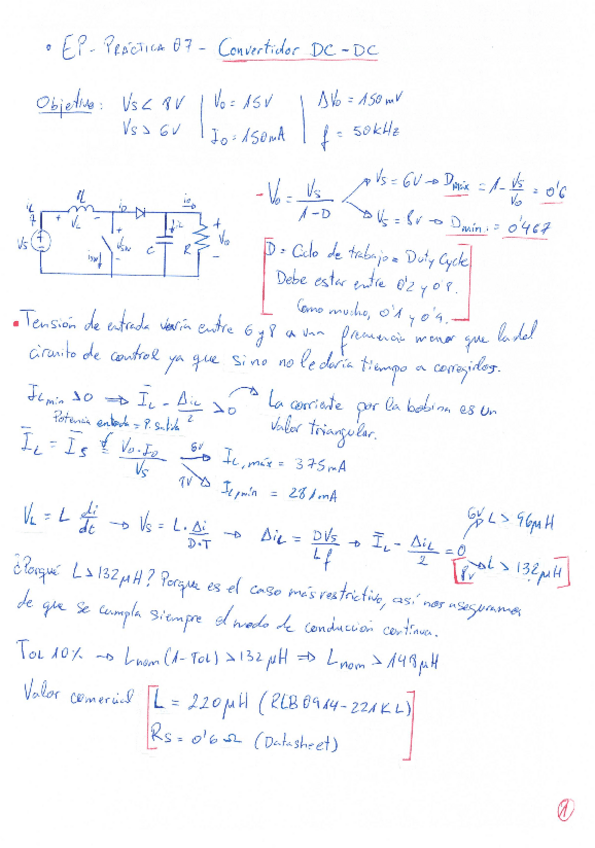 • EP - PRÁCTICA 07 - Convertidor DC-DC
Objetivo: Vs < 8V | Vo = 15V | ΔVo = 150mV
Vs > 6V | Io = 150mA | f = 50kHz
iL L iD io
+ VL -
Vs + Vsw iC C R + Vo -
isw
- Vo = Vs / 1-D → Vs = 6V → Dmáx = 1 - Vs/Vo = 0'6
→ Vs = 8V → Dmín. = 0'467
D = Ciclo de trabajo = Duty Cycle
Debe estar entre 0'2 y 0'8.
Como mucho, 0'1 y 0'9.
• Tensión de entrada varía entre 6 y 8 a una frecuencia menor que la del
circuito de control ya que si no no le daría tiempo a corregirlos.
ILmin > 0 ⇒ IL - ΔiL/2 > 0 → La corriente por la bobina es un
valor triangular.
Potencia entrada = P. salida
IL = Is = Vo·Io / Vs 6V → IL,máx = 375mA
8V → IL,mín = 281mA
VL = L di/dt → Vs = L·Δi / D·T → ΔiL = DVs / Lf → IL - ΔiL/2 = 0 6V L > 96μH
8V → L > 132μH
¿Porqué L > 132μH? Porque es el caso más restrictivo, así nos aseguramos
de que se cumpla siempre el modo de conducción continua.
TOL 10% → Lnom (1-TOL) > 132μH ⇒ Lnom > 148μH
Valor comercial L = 220μH (RLB0914-221KL)
Rs = 0'6Ω (Datasheet)
1